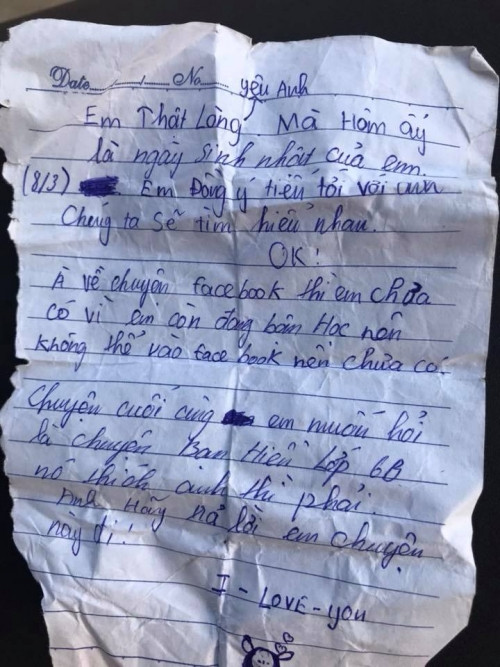 Date....../....../...... No......
yêu Anh
Em Thật Lòng Mà Hôm ấy
là ngày sinh nhật của em.
(8/3) Em Đồng ý tiến tới với anh
Chúng ta sẽ tìm hiểu nhau.
OK!
À về chuyện facebook thì em chưa
có vì em còn đang bận Học nên
không thể vào face book nên chưa có.
Chuyện cuối cùng em muốn hỏi
là chuyện Bạn Hiền Lớp 6B
nó thích anh thì phải.
Anh Hãy trả lời em chuyện
này đi!
I - LOVE - you